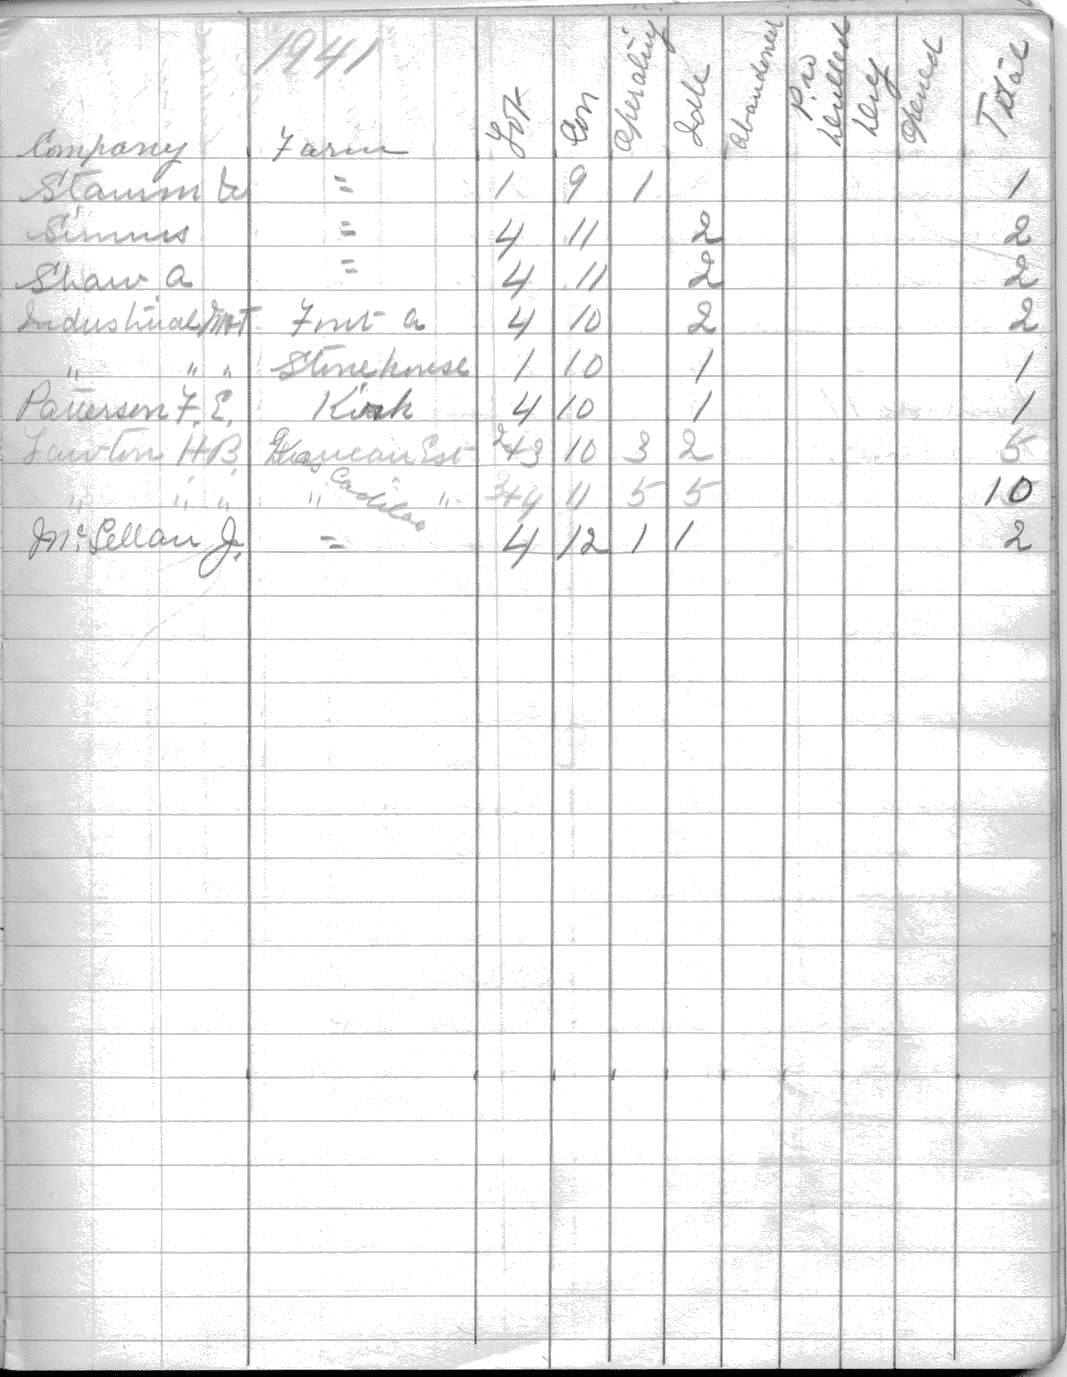 1941
Company Farm Lot Con Operating Idle Abandoned P.W. Drilled Dry Opened Total
Stamm = 1 9 1 1
Simms = 4 11 2 2
Shaw A = 4 11 2 2
Industrial Mt Font A 4 10 2 2
" " " Stonehouse 1 10 1 1
Patterson F. E. Kirk 4 10 1 1
Lawton H B. Est 2+3 10 3 2 5
" " " " Cadillac " 3+4 11 5 5 10
McLellan J. = 4 12 1 1 2